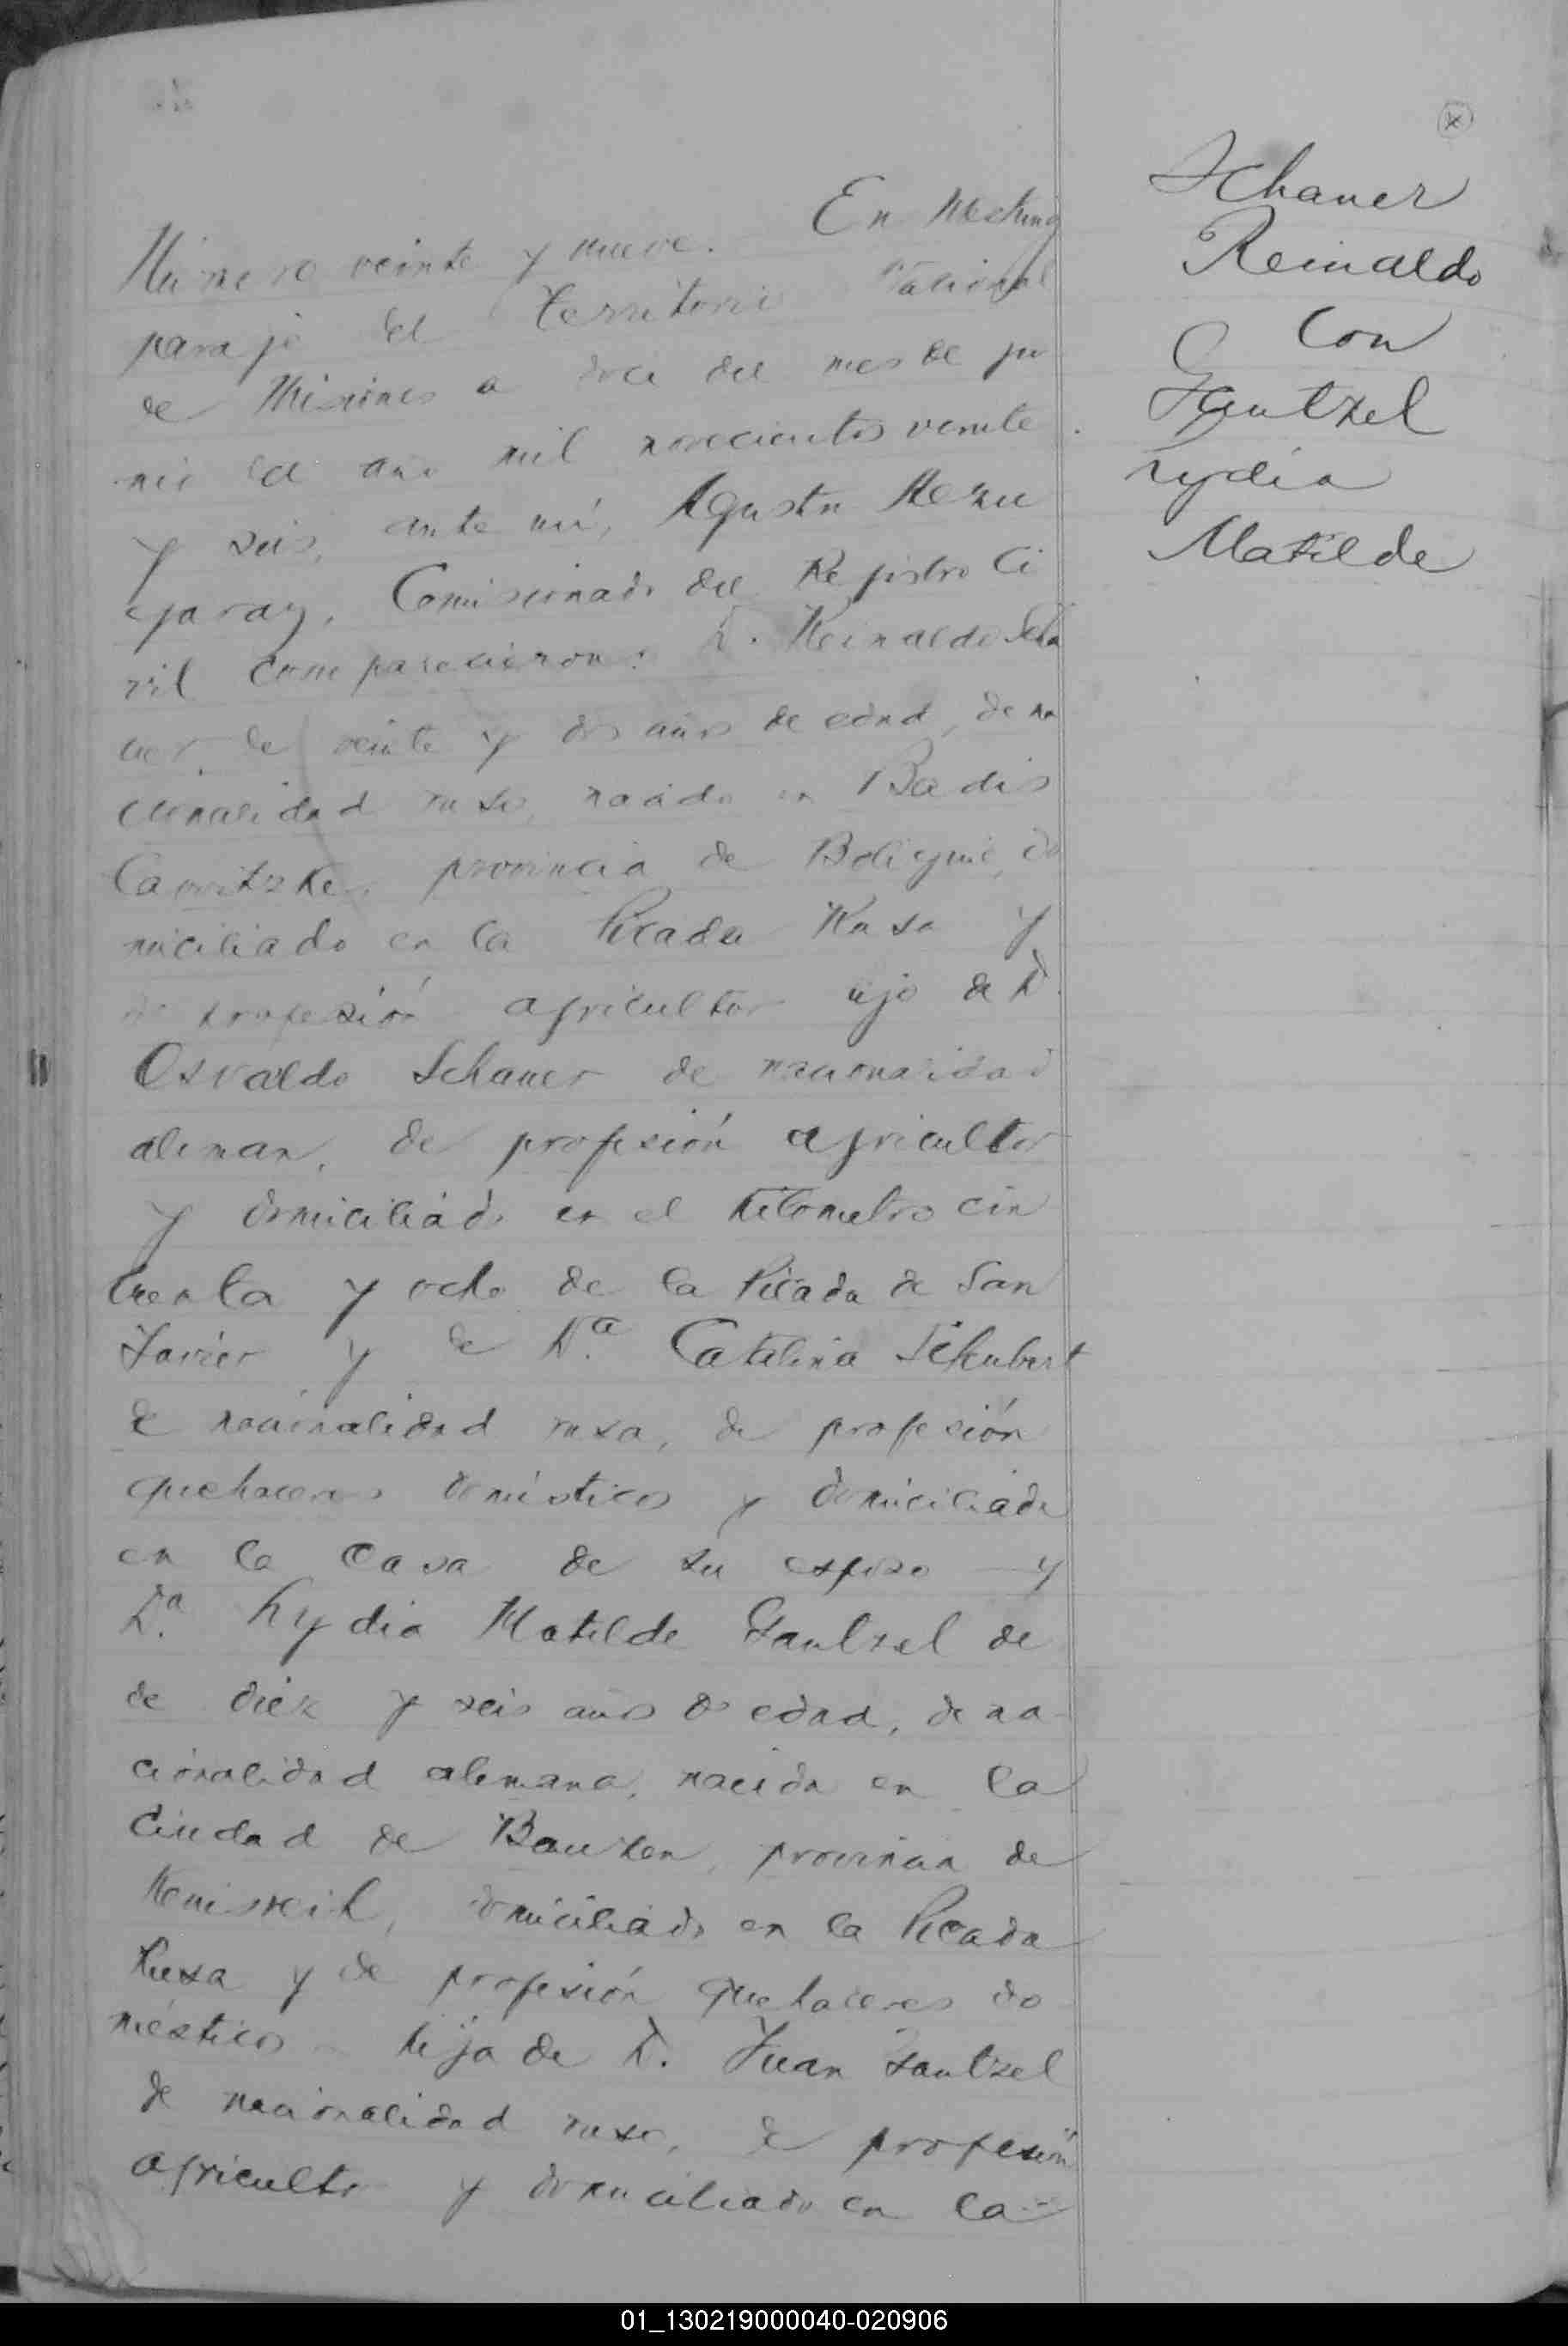 Schauer
Reinaldo
con
Gautzel
Lydia
Matilde
Número veinte y nueve. En Mecking
paraje del Territorio Nacional
de Misiones a doce del mes de ju
nio del año mil novecientos veinte
y seis, ante mí, Agustin
garay, Comisionado del Registro Ci
vil comparecieron: D. Reinaldo Scha
uer, de veinte y dos años de edad, de na
cionalidad ruso, nacido en
provincia de do
miciliado en la Picada Rusa y
de profesión agricultor ijo de D.
Osvaldo Schauer de nacionalidad
aleman, de profesión agricultor
y domiciliado en el kilometro cin
cuenta y ocho de la Picada de San
Javier y de Da. Catalina Schubert
de nacionalidad rusa, de profesión
quehaceres domésticos y domiciliada
en la casa de su esposo y
Da. Lydia Matilde Gautzel de
de diez y seis años de edad, de na
cionalidad alemana, nacida en la
Ciudad de Bautzen, provincia de
domiciliado en la Picada
Rusa y de profesión quehaceres do
mésticos hija de D. Juan Gautzel
de nacionalidad ruso, de profesión
agricultor y domiciliado en la
01_130219000040-020906